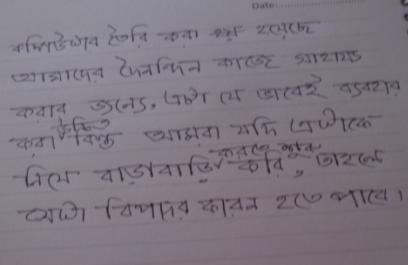 Date:
কম্পিউটার তৈরি করা হয় হয়েছে
আমাদের দৈনন্দিন কাজে সাহায্য
করার জন্যে, এটা সে ভাবেই ব্যবহার
করা উচিত কিন্তু আমরা যদি এটাকে
নিয়ে বাড়াবাড়ি করতে শুরু করি, তাহলে
এটা বিপদের কারন হতে পারে।